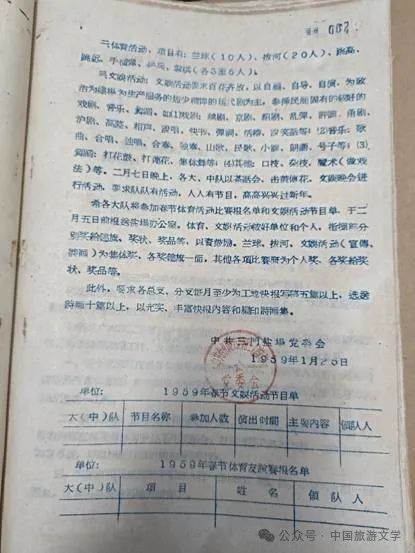 二体育活动，项目有：兰球（10人）、拔河（20人）、跳高、
跳远、手榴弹、乒乓、象棋（各3至6人）。
三文娱活动：文娱活动要求百花齐放，以自编、自导、自演、为政
治为建场为生产服务的短少精悍的现代剧为主，参择民间固有的较好的
戏剧、音乐、舞蹈。如⑴戏剧：越剧、京剧、绍剧、乱弹、甬剧、
沪剧、高腔、相声、说唱、快书、弹词、活报、沙奖品等）⑵音乐：歌
曲、合唱、独唱、合奏、独奏、山歌、民歌、小调、朝日、号子等）⑶
舞蹈：打花鼓、打莲花、集体舞等）⑷其他：口技、杂技、魔术（做戏
法）等。二月七日晚上，各大、中队以茶话会、击鼓传花、文娱晚会进
行活动，要求队队有活动，人人有节目，高高兴兴过新年。
希各大队将参加春节体育活动比赛报名单和文娱活动节目单，于二
月五日前报送盐场办公室，体育、文娱活动较好单位和个人，指挥部分
别奖给锦旗、奖状、奖品等，以资鼓励。兰球、拔河、文娱活动（宣傳
为集体奖，各奖锦旗一面，其他各项比赛为个人奖、各奖给奖
状、奖品等。
此外，要求各总支、分支每月至少为工地快报写稿五篇以上，选送
诗画十篇以上，以充实、丰富快报内容和编印诗画集。
中共三门盐場党委会
1959年1月25日
单位：　1959年春节文娱活动节目单
大（中）队　节目名称　参加人数　演出时間　主要内容　領队人
单位：　1959年春节体育友誼賽报名单
大（中）队　項目　姓名　領队人
公众号·中国旅游文学